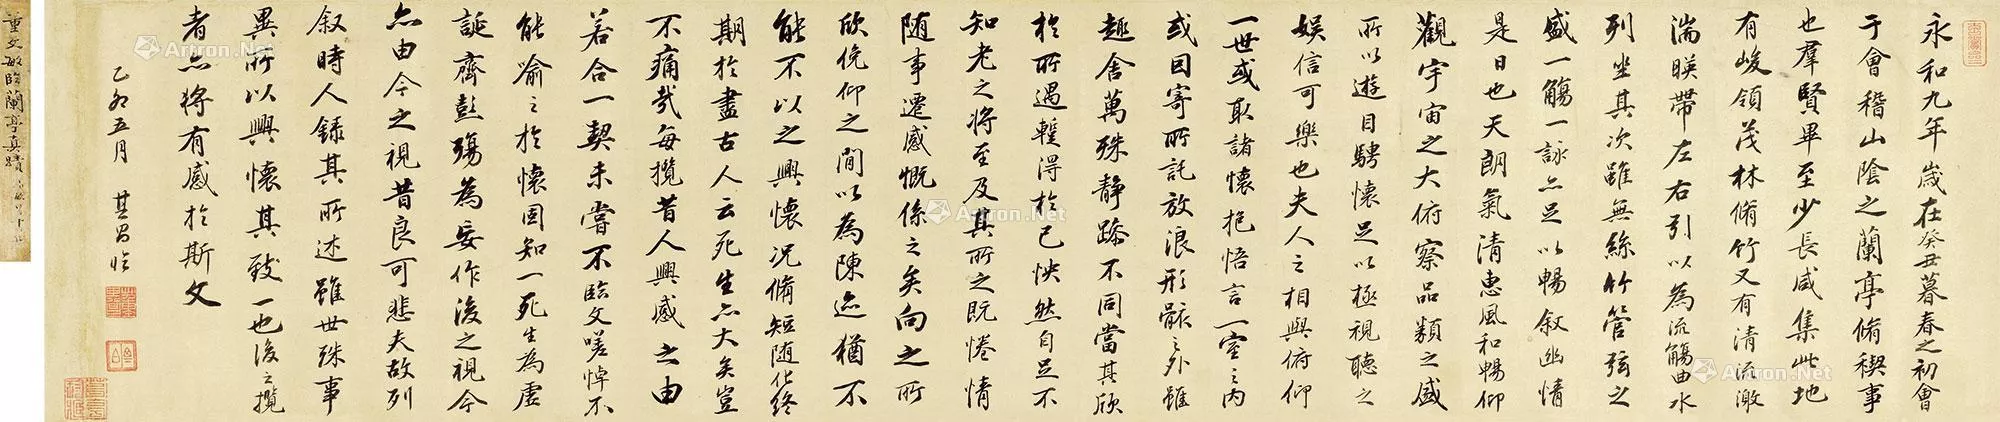 永和九年歲在癸丑暮春之初會
于會稽山陰之蘭亭脩稧事
也羣賢畢至少長咸集此地
有峻領茂林脩竹又有清流激
湍暎帶左右引以為流觴曲水
列坐其次雖無絲竹管弦之
盛一觴一詠亦足以暢叙幽情
是日也天朗氣清惠風和暢仰
觀宇宙之大俯察品類之盛
所以遊目騁懷足以極視聽之
娛信可樂也夫人之相與俯仰
一世或取諸懷抱悟言一室之內
或因寄所託放浪形骸之外雖
趣舍萬殊靜躁不同當其欣
於所遇蹔得於己怏然自足不
知老之將至及其所之既惓情
隨事遷感慨係之矣向之所
欣俛仰之間以為陳迹猶不
能不以之興懷況脩短隨化終
期於盡古人云死生亦大矣豈
不痛哉每攬昔人興感之由
若合一契未嘗不臨文嗟悼不
能喻之於懷固知一死生為虛
誕齊彭殤為妄作後之視今
亦由今之視昔良可悲夫故列
叙時人錄其所述雖世殊事
異所以興懷其致一也後之攬
者亦將有感於斯文
乙卯五月 其昌臨
董文敏臨蘭亭真蹟
Artron.Net
Artron.Net
Artron.Net
Artron.Net
Artron.Net
Artron.Net
Artron.Net
Artron.Net